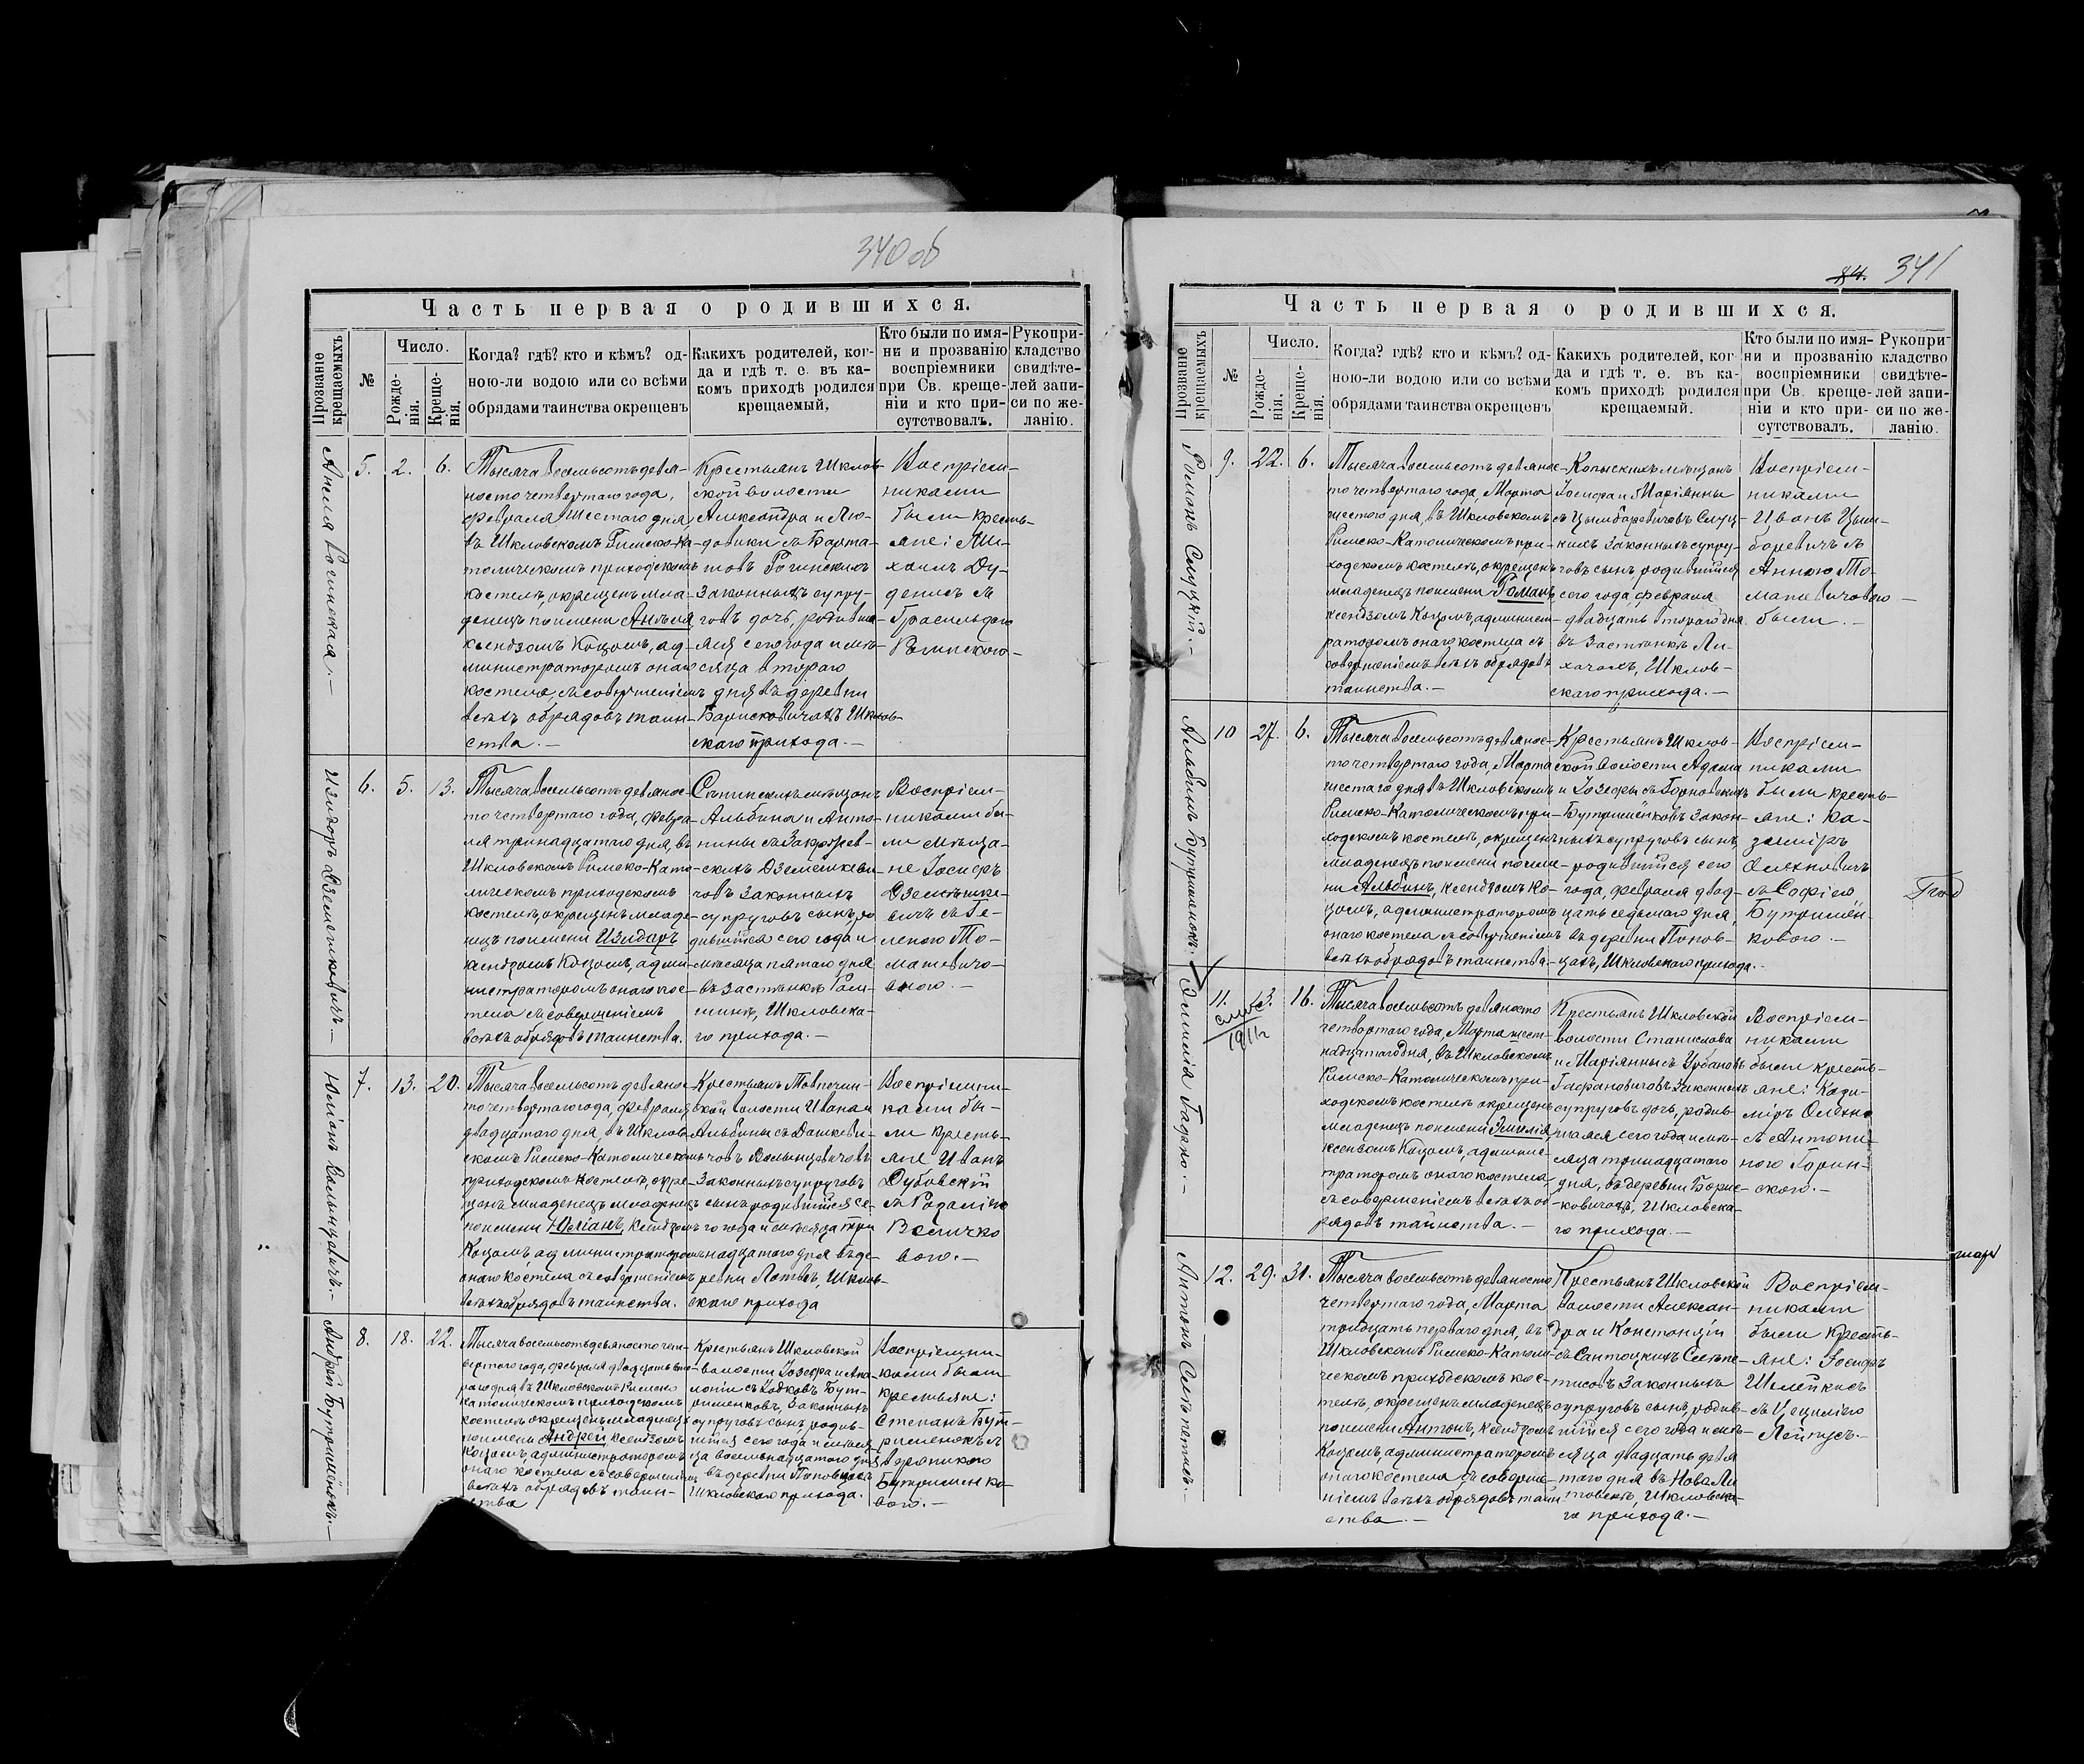 340 об
Часть первая о родившихся.
Прозваніе крещаемыхъ
№
Число.
Рожде-
нія.
Креще-
нія.
Когда? гдѣ? кто и кѣмъ? од-
ною-ли водою или со всѣми
обрядами таинства окрещенъ
Какихъ родителей, ког-
да и гдѣ т. е. въ ка-
комъ приходѣ родился
крещаемый,
Кто были по имя-
ни и прозванію
воспріемники
при Св. креще-
ніи и кто при-
сутствовалъ.
Рукопри-
кладство
свидѣте-
лей запи-
си по же-
ланію.
Анеля Рогинская.—
5.
2.
6.
Тысяча восемьсотъ девя-
носто четвертаго года,
февраля шестаго дня,
въ Шкловскомъ Римско-Ка-
толическомъ приходскомъ
костелѣ, окрещенъ мла-
денецъ поимени Анеля,
ксендзомъ Коцомъ, ад-
министраторомъ онаго
костела, съ совершеніемъ
всѣхъ обрядовъ таин-
ства.—
Крестьянъ Шклов-
ской волости
Александра и Лю-
довики съ
Рогинскихъ
законныхъ супру-
говъ дочь, родивша-
яся сего года и мѣ-
сяца втораго
дня въ деревни
Барисковичахъ Шклов-
скаго прихода.—
Воспріем-
никами
были кресть-
яне: Ми-
хаилъ Ду-
денисъ съ
Изидоръ Дземешкевичъ.—
6.
5.
13.
Тысяча восемьсотъ девянос-
то четвертаго года, февра-
ля тринадцатаго дня, въ
Шкловскомъ Римско-Като-
лическомъ приходскомъ
костелѣ, окрещенъ младе-
нецъ поимени Изидоръ
ксендзомъ Коцомъ, адми-
нистраторомъ онаго кос-
тела съ совершеніемъ
всѣхъ обрядовъ таинства.
мѣщанъ
Альбина и Анто-
нины съ Закржев-
скихъ Дземешкеви-
човъ законныхъ
супруговъ сынъ, ро
дившійся сего года и
мѣсяца пятаго дня
въ застѣнкѣ
Шкловска-
го прихода.—
Воспріем-
никами бы-
ли мѣща-
не Іосифъ
Дземешке-
вичъ съ Ге-
леною То-
машевичо-
вою.—
Юліанъ Вольнцевичъ.—
7.
13.
20.
Тысяча восемьсотъ девянос-
то четвертаго года, февраля
двадцатаго дня, въ Шклов-
скомъ Римско-Католическомъ
приходскомъ костелѣ, окре-
щенъ младенецъ
поимени Юліанъ, ксендзомъ
Коцомъ, администраторомъ
онаго костела съ совершеніемъ
всѣхъ обрядовъ таинства.
Крестьянъ
волости Ивана и
Альбины съ Дашкеви-
човъ
законныхъ супруговъ
сынъ родившійся се-
го года и мѣсяца три
надцатаго дня въ де-
ревни Лотвѣ, Шклов-
скаго прихода
Воспріемни-
ками бы-
ли кресть-
яне Иванъ
Дубовскій
съ Розаліею
Величко
вою.—
Андрей Бутримёнокъ.—
8.
18.
22.
Тысяча восемьсотъ девяносто чет-
вертаго года, февраля двадцать вто-
раго дня, въ Шкловскомъ Римско
Католическомъ приходскомъ
костелѣ окрещенъ младенецъ
поимени Андрей ксендзомъ
Коцомъ, администраторомъ
онаго костела съ совершеніемъ
всѣхъ обрядовъ таин-
ства
Крестьянъ Шкловской
волости Іозефа и Апо-
лоніи съ Бут-
рименковъ, законныхъ
супруговъ сынъ, родив-
шійся сего года и мѣся-
ца восемнадцатаго дня
въ деревни Поповцахъ
Шкловскаго прихода.
Воспріемни-
ками были
крестьяне:
Степанъ Бут-
рименокъ съ
Вероникою
Бутрименко-
вою.—
84. 341
Часть первая о родившихся.
Прозваніе крещаемыхъ
№
Число.
Рожде-
нія.
Креще-
нія.
Когда? гдѣ? кто и кѣмъ? од-
ною-ли водою или со всѣми
обрядами таинства окрещенъ
Какихъ родителей, ког-
да и гдѣ т. е. въ ка-
комъ приходѣ родился
крещаемый.
Кто были по имя-
ни и прозванію
воспріемники
при Св. креще-
ніи и кто при-
сутствовалъ.
Рукопри-
кладство
свидѣте-
лей запи-
си по же-
ланію.
Романъ Слуцкій.—
9.
22.
6.
Тысяча восемьсотъ девянос-
то четвертаго года, Марта
шестого дня, въ Шкловскомъ
Римско-Католическомъ при-
ходскомъ костелѣ, окрещенъ
младенецъ поимени Романъ
ксендзомъ Коцомъ, админист-
раторомъ онаго костела съ
совершеніемъ всѣхъ обрядовъ
таинства.—
Копыскихъ мѣщанъ
Іосифа и Маріянны
съ Цымбаревичовъ Слуц-
кихъ законныхъ супру-
говъ сынъ, родившійся
сего года, февраля
двадцать втораго дня
въ застѣнкѣ Ли-
хачахъ, Шклов-
скаго прихода.—
Воспріем-
никами
Иванъ Цым-
баревичъ съ
Анною То-
машевичовою
были.—
Альбинъ Бутримёнокъ.
10
27.
6.
Тысяча восемьсотъ девянос-
то четвертаго года, Марта
шестаго дня въ Шкловскомъ
Римско-Католическомъ при-
ходскомъ костелѣ, окрещенъ
младенецъ поимени поиме-
ни Альбинъ, ксендзомъ Ко-
цомъ, администраторомъ
онаго костела съ совершеніемъ
всѣхъ обрядовъ таинства.—
Крестьянъ Шклов-
ской волости Адама
и Іозефы съ Горновскихъ
Бутримёнковъ закон-
ныхъ супруговъ сынъ
родившійся сего
года, февраля двад-
цать седьмаго дня,
въ деревни Попов-
цахъ, Шкловскаго прихода.—
Воспріем-
никами
были кресть-
яне: Ка-
зиміръ
Олехновичъ
съ Софіею
Бутримён-
ковою.—
Эмилія Гафно.—
11.
13.
16.
Тысяча восемьсотъ девяносто
четвертаго года, Марта шест-
надцатаго дня, въ Шкловскомъ
Римско-Католическомъ при-
ходскомъ костелѣ окрещенъ
младенецъ поимени Эмилія,
ксендзомъ Коцомъ, админис-
траторомъ онаго костела
съ совершеніемъ всѣхъ об-
рядовъ таинства.—
Крестьянъ Шкловской
волости Станислава
и Маріянны съ Урбановъ
законныхъ
супруговъ дочь, родив-
шаяся сего года и мѣ-
сяца тринадцатаго
дня, въ деревни Борис-
ковичахъ, Шкловска-
го прихода.—
Воспріем-
никами
были кресть-
яне:
съ Антони-
ною Горин-
скою.—
Антонъ
12.
29.
31.
Тысяча восемьсотъ девяносто
четвертаго года, Марта
тридцать перваго дня, въ
Шкловскомъ Римско-Католи-
ческомъ приходскомъ кос-
телѣ, окрещенъ младенецъ
поимени Антонъ, ксендзомъ
Коцомъ, администраторомъ
онаго костела съ соверше-
ніемъ всѣхъ обрядовъ таин
ства.—
Крестьянъ Шкловской
волости Алексан-
дра и Констанціи
законныхъ
супруговъ сынъ, родив-
шійся сего года и мѣ-
сяца двадцать девя
таго дня въ
Шкловска-
го прихода.—
Воспріем-
никами
были кресть-
яне: Іосифъ
съ Цециліею